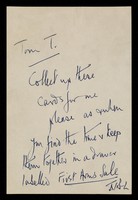 Tom T.
Collect up these
cards for me
please as & when
you find the time & keep
them together in a drawer
labelled First Arms Sale